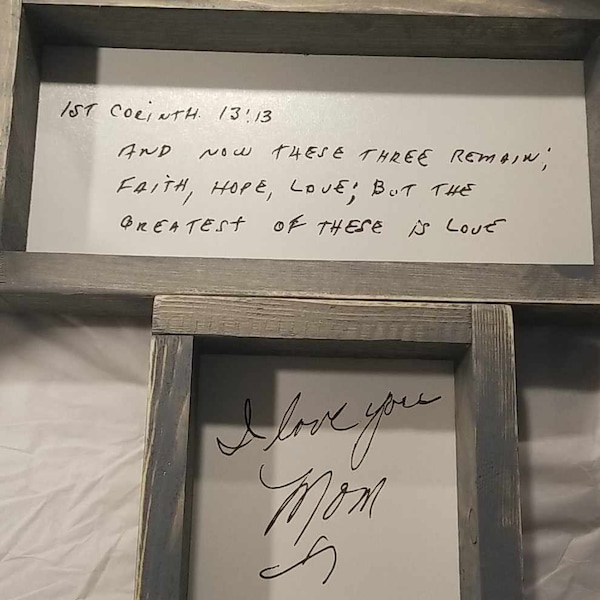 1ST CORINTH. 13:13
AND NOW THESE THREE REMAIN;
FAITH, HOPE, LOVE; BUT THE
GREATEST OF THESE IS LOVE
I love you
Mom